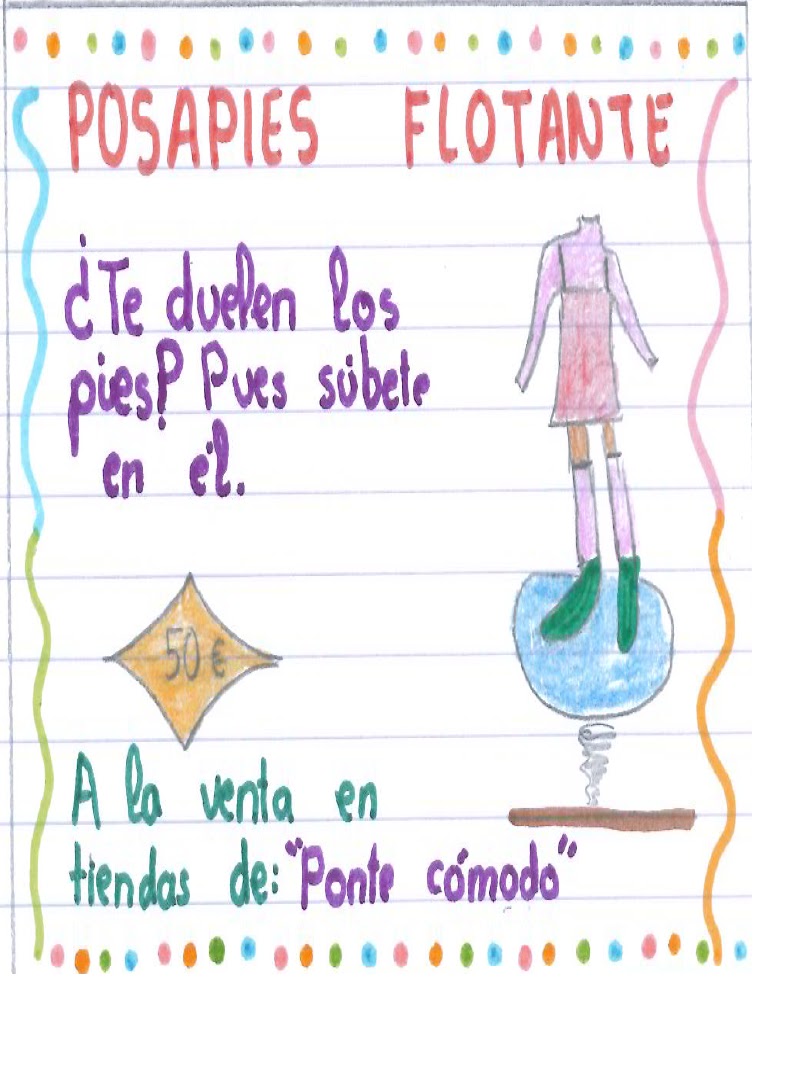 POSAPIES FLOTANTE
¿Te duelen los
pies? Pues súbete
en él.
50 €
A la venta en
tiendas de: "Ponte cómodo"